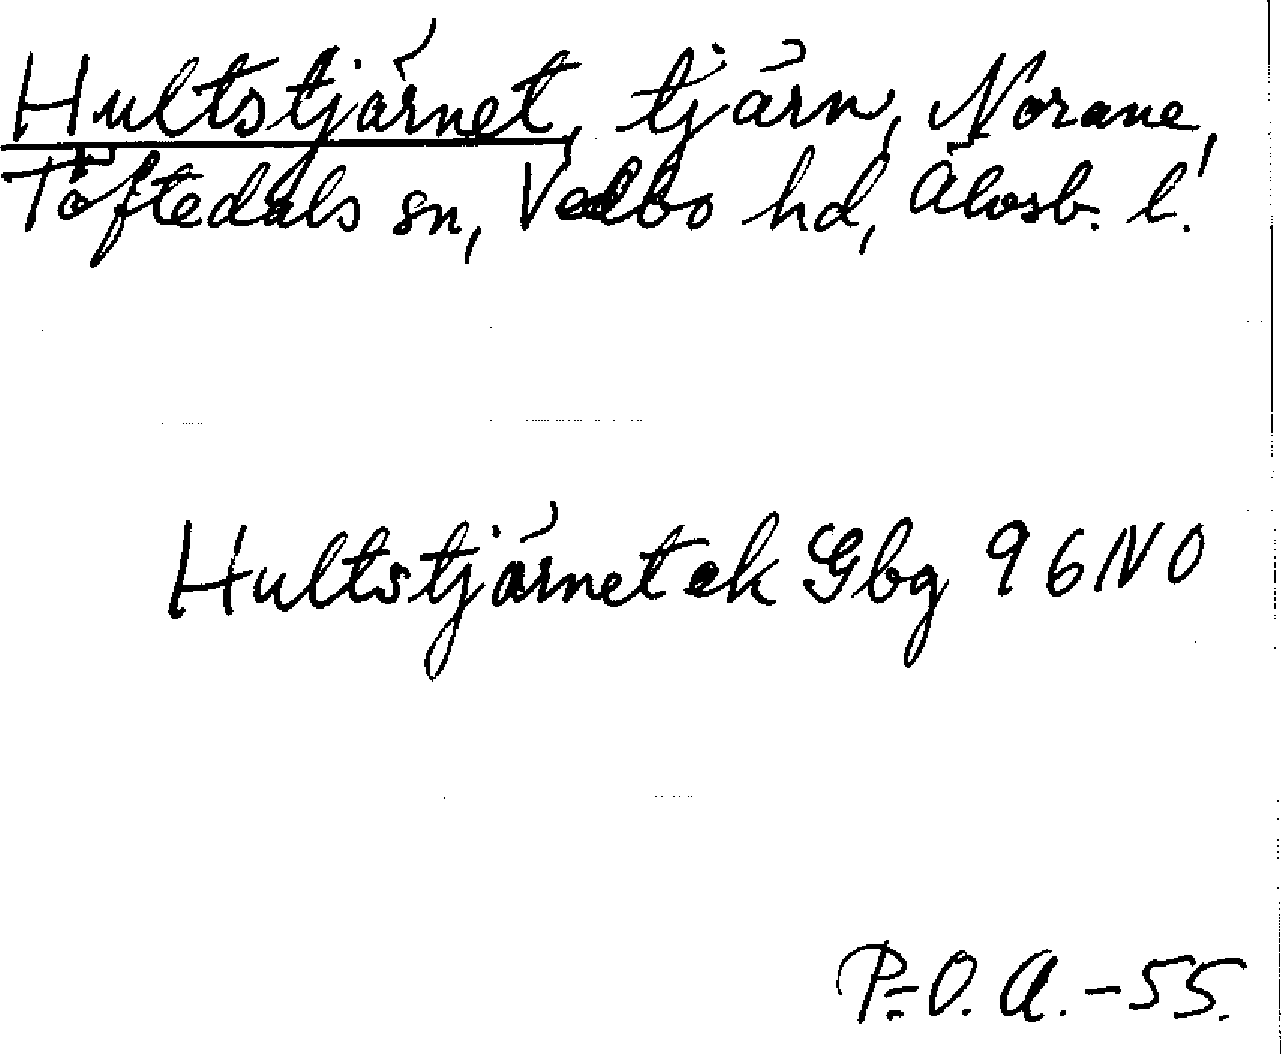 Hultstjärnet, tjärn, Norane,
Töftedals sn, Vedbo hd, Älvsb. l.
Hultstjärnet ek Gbg 96 NO
P.-O. A. -55.